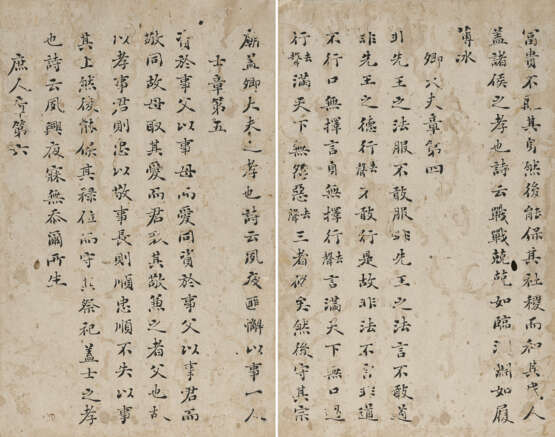 富貴不離其身然後能保其社稷而和其民人
蓋諸侯之孝也詩云戰戰兢兢如臨深淵如履
薄冰
卿大夫章第四
非先王之法服不敢服非先王之法言不敢道
非先王之德行去聲不敢行是故非法不言非道
不行口無擇言身無擇行去聲言滿天下無口過
行去聲滿天下無怨惡去聲三者備矣然後守其宗
廟蓋卿大夫之孝也詩云夙夜匪懈以事一人
士章第五
資於事父以事母而愛同資於事父以事君而
敬同故母取其愛而君取其敬兼之者父也故
以孝事君則忠以敬事長則順忠順不失以事
其上然後能保其祿位而守其祭祀蓋士之孝
也詩云夙興夜寐無忝爾所生
庶人章第六